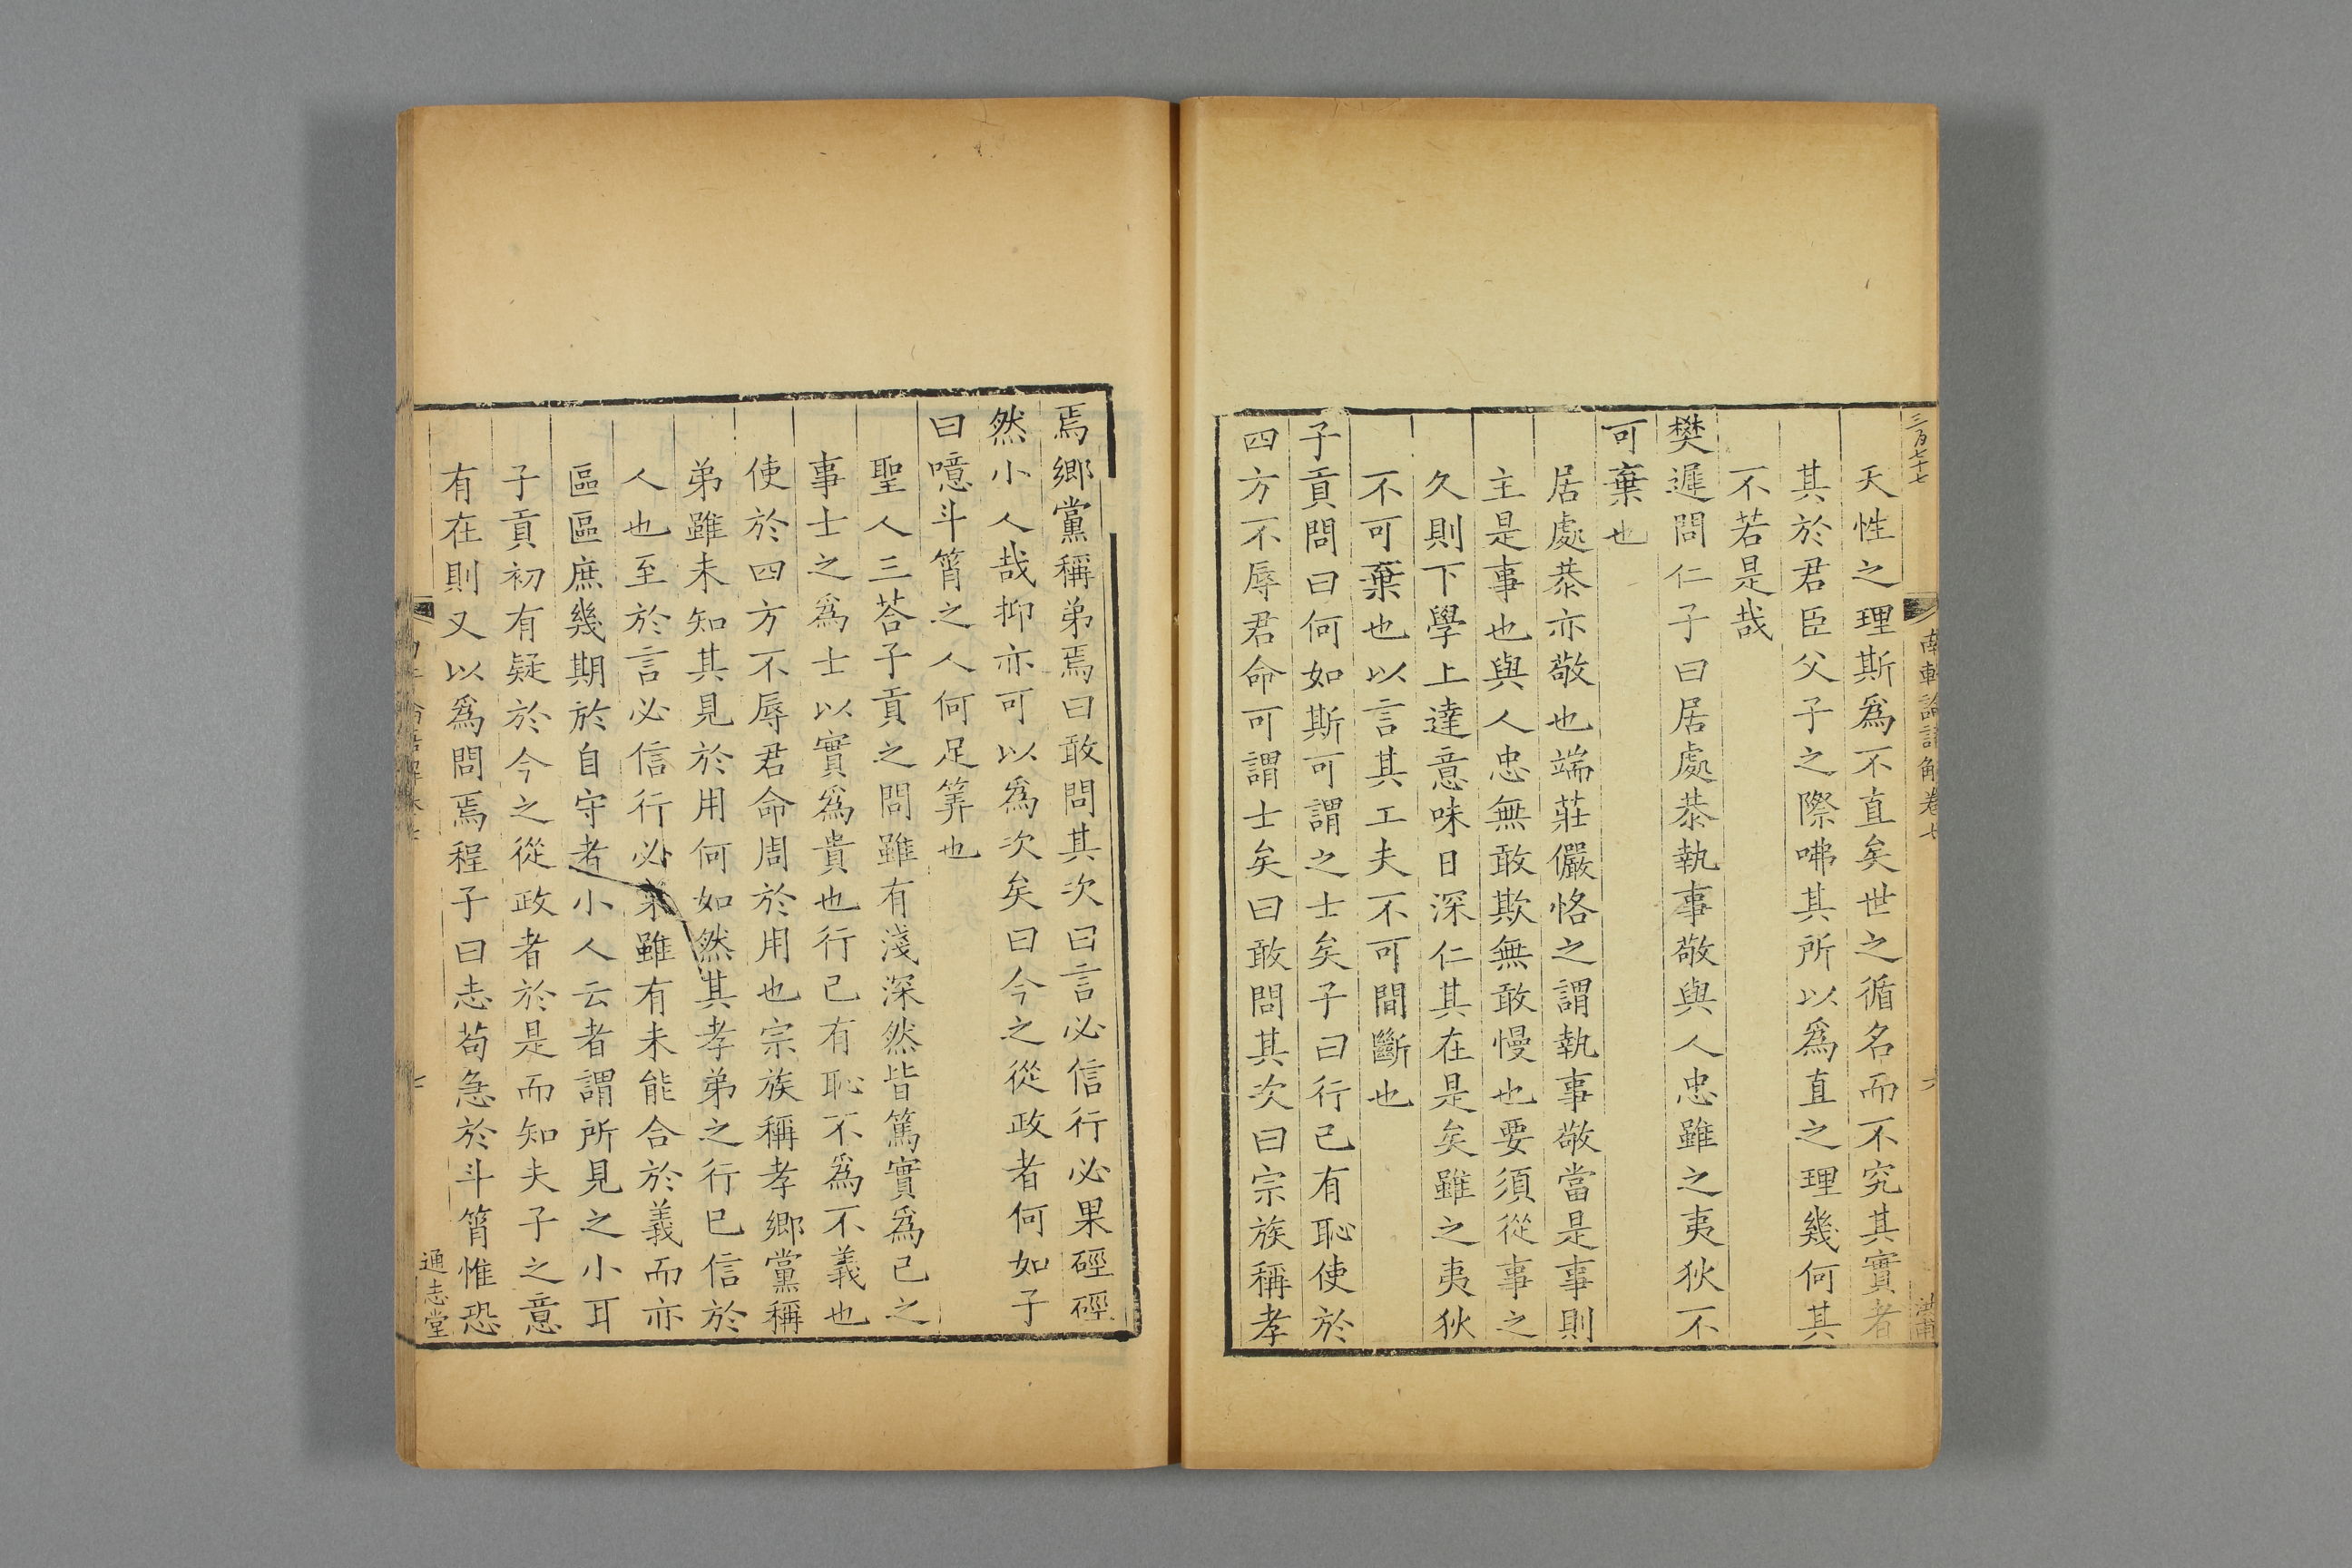 三百七十七
南軒論語解卷七
六
天性之理斯爲不直矣世之循名而不究其實者
其於君臣父子之際咈其所以爲直之理幾何其
不若是哉
樊遲問仁子曰居處恭執事敬與人忠雖之夷狄不
可棄也
居處恭亦敬也端莊儼恪之謂執事敬當是事則
主是事也與人忠無敢欺無敢慢也要須從事之
久則下學上達意味日深仁其在是矣雖之夷狄
不可棄也以言其工夫不可間斷也
子貢問曰何如斯可謂之士矣子曰行己有恥使於
四方不辱君命可謂士矣曰敢問其次曰宗族稱孝
焉鄉黨稱弟焉曰敢問其次曰言必信行必果硜硜
然小人哉抑亦可以爲次矣曰今之從政者何如子
曰噫斗筲之人何足筭也
聖人三荅子貢之問雖有淺深然皆篤實爲己之
事士之爲士以實爲貴也行己有恥不爲不義也
使於四方不辱君命周於用也宗族稱孝鄉黨稱
弟雖未知其見於用何如然其孝弟之行已信於
人也至於言必信行必果雖有未能合於義而亦
區區庶幾期於自守者小人云者謂所見之小耳
子貢初有疑於今之從政者於是而知夫子之意
有在則又以爲問焉程子曰志苟急於斗筲惟恐
通志堂